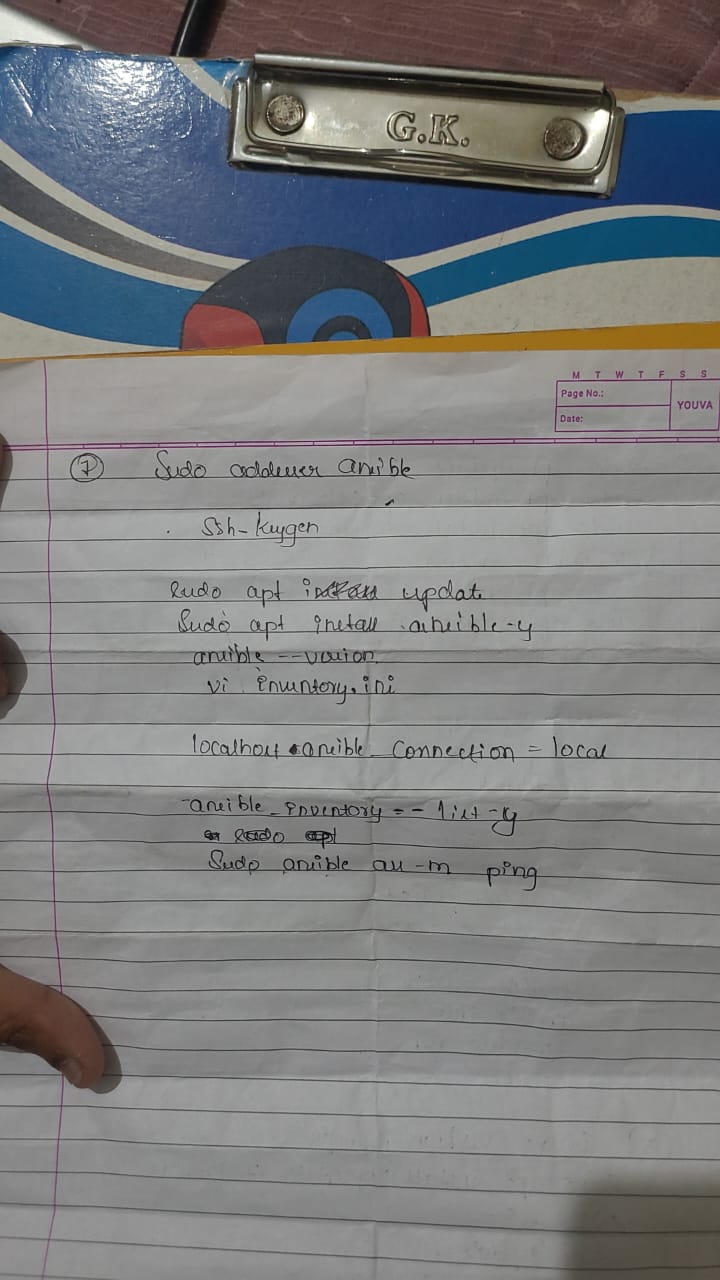 G.K.
M T W T F S S
Page No.:
YOUVA
Date:
7 Sudo adduser ansible
. Ssh-keygen
Sudo apt install update
Sudo apt install ansible -y
ansible --version
vi inventory.ini
localhost ansible_connection = local
ansible_inventory -- list -y
Sudo apt
Sudo ansible all -m ping